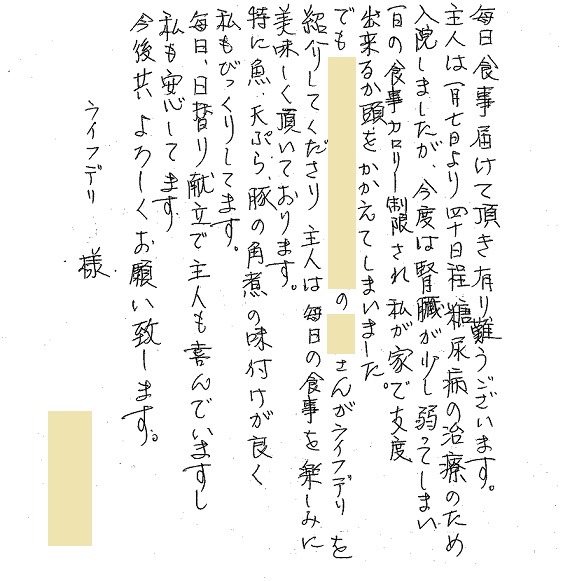 毎日食事届けて頂き有り難うございます。
主人は一月七日より四十日程糖尿病の治療のため
入院しましたが、今度は腎臓が少し弱ってしまい
一日の食事カロリー制限され私が家で支度
出来るか頭をかかえてしまいました。
でも の さんがライフデリを
紹介してくださり主人は毎日の食事を楽しみに
美味しく頂いております。
特に魚、天ぷら、豚の角煮の味付けが良く
私もびっくりしてます。
毎日、日替り献立で主人も喜んでいますし
私も安心してます
今後共よろしくお願い致します。
ライフデリ 様